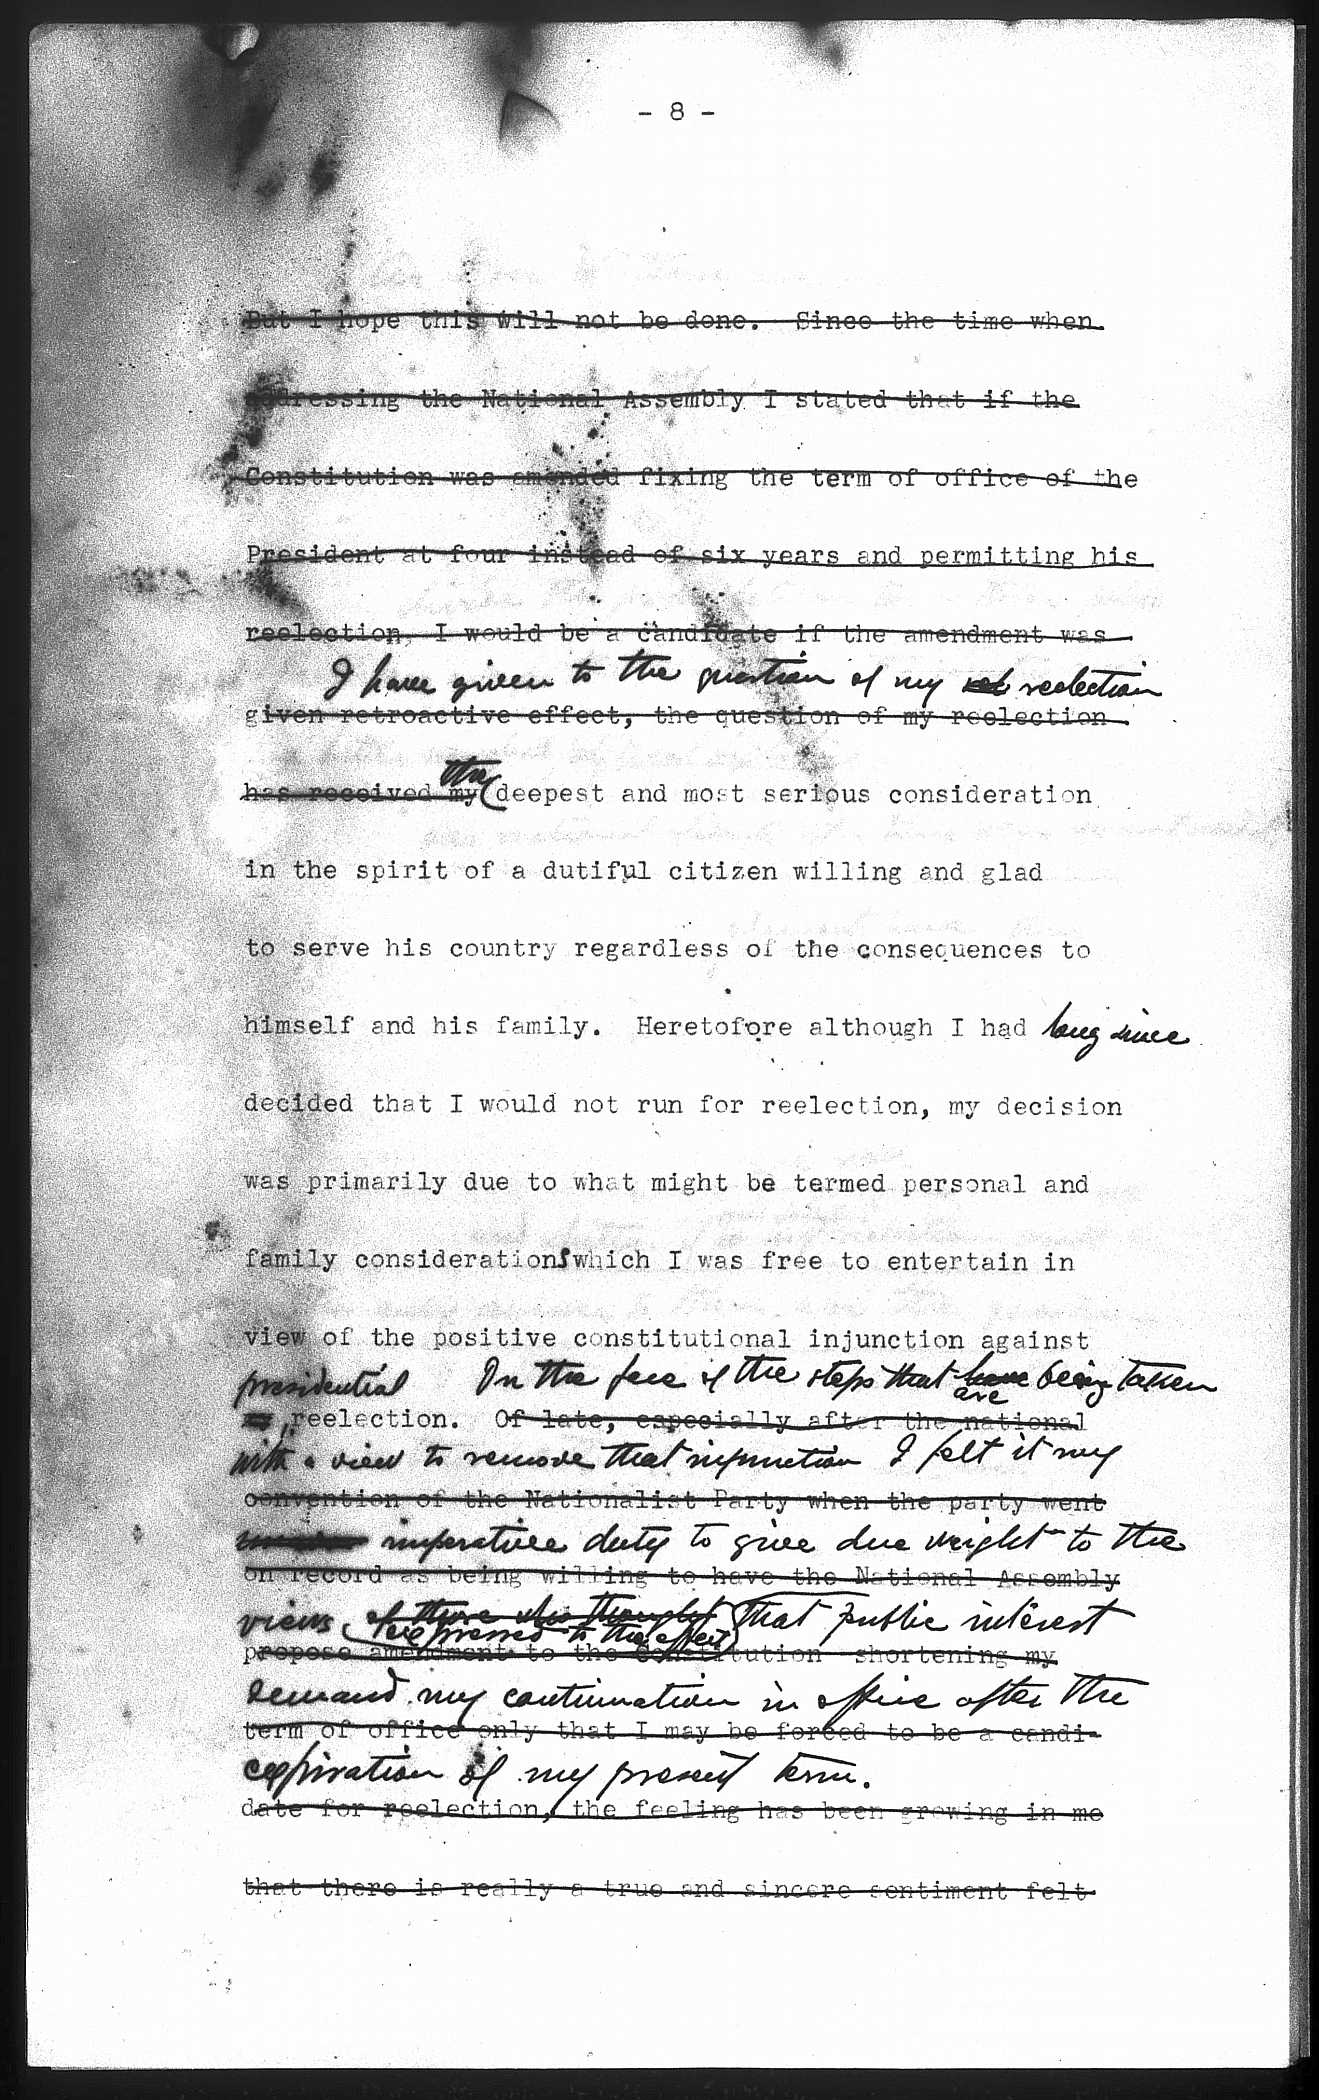 - 8 -
But I hope this will not be done. Since the time when
addressing the National Assembly I stated that if the
Constitution was amended fixing the term of office of the
President at four instead of six years and permitting his
reelection, I would be a candidate if the amendment was
I have given to the question of my reelection
given retroactive effect, the question of my reelection
the
has received my deepest and most serious consideration
in the spirit of a dutiful citizen willing and glad
to serve his country regardless of the consequences to
himself and his family. Heretofore although I had long since
decided that I would not run for reelection, my decision
was primarily due to what might be termed personal and
family considerations which I was free to entertain in
view of the positive constitutional injunction against
presidential In the face of the steps that have being taken
are
reelection. Of late, especially after the national
with a view to remove that injunction I felt it my
convention of the Nationalist Party when the party went
imperative duty to give due weight to the
on record as being willing to have the National Assembly
views of those who thought that public interest
expressed to the effect
propose amendment to the Constitution shortening my
demand my continuation in office after the
term of office only that I may be forced to be a candi-
expiration of my present term.
date for reelection, the feeling has been growing in me
that there is really a true and sincere sentiment felt